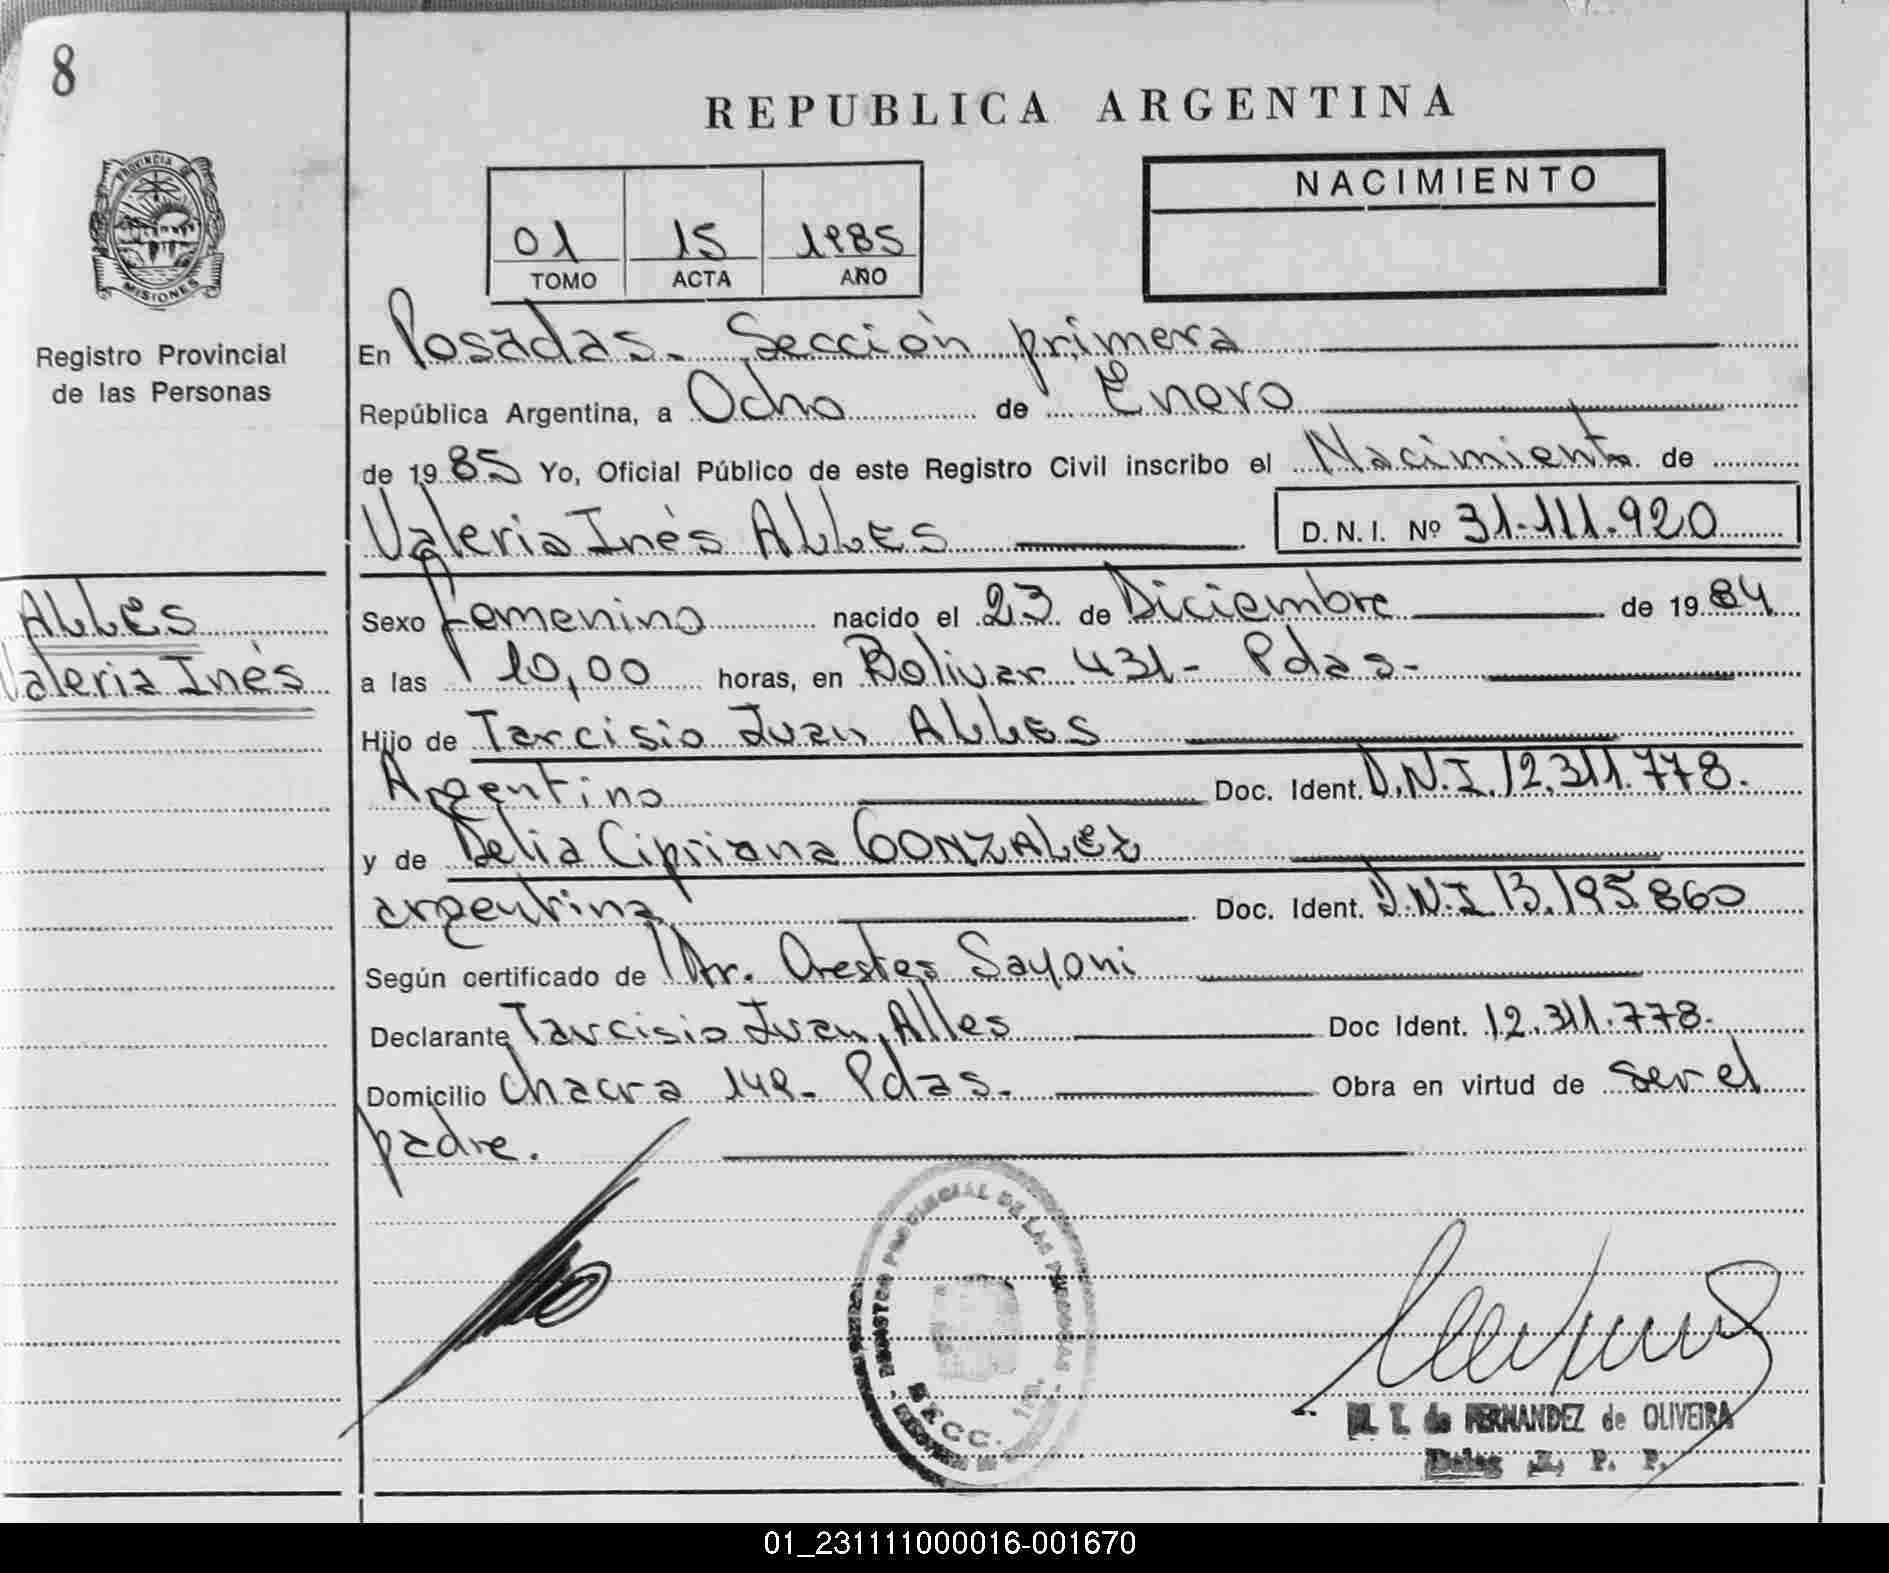 8
REPUBLICA ARGENTINA
PROVINCIA DE
MISIONES
Registro Provincial
de las Personas
01 15 1985
TOMO ACTA AÑO
NACIMIENTO
En Posadas. Sección primera
República Argentina, a Ocho de Enero
de 1985 Yo, Oficial Público de este Registro Civil inscribo el Nacimiento de
Valeria Inés ALLES D.N.I. Nº 31.111.920
ALLES
Valeria Inés
Sexo Femenino nacido el 23 de Diciembre de 1984
a las 10,00 horas, en Bolivar 431- Pdas-
Hijo de Tarcisio Juan ALLES
Argentino Doc. Ident. D.N.I. 12.311.778.
y de Delia Cipriana GONZALEZ
argentina Doc. Ident. D.N.I 13.195.860
Según certificado de Dr. Orestes Sayoni
Declarante Tarcisio Juan Alles Doc Ident. 12.311.778.
Domicilio Chacra 149- Pdas. Obra en virtud de ser el
padre.
REGISTRO PROVINCIAL DE LAS PERSONAS
SECC. 1ra.
M. T. de FERNANDEZ de OLIVEIRA
Deleg. R. P. P.
01_231111000016-001670